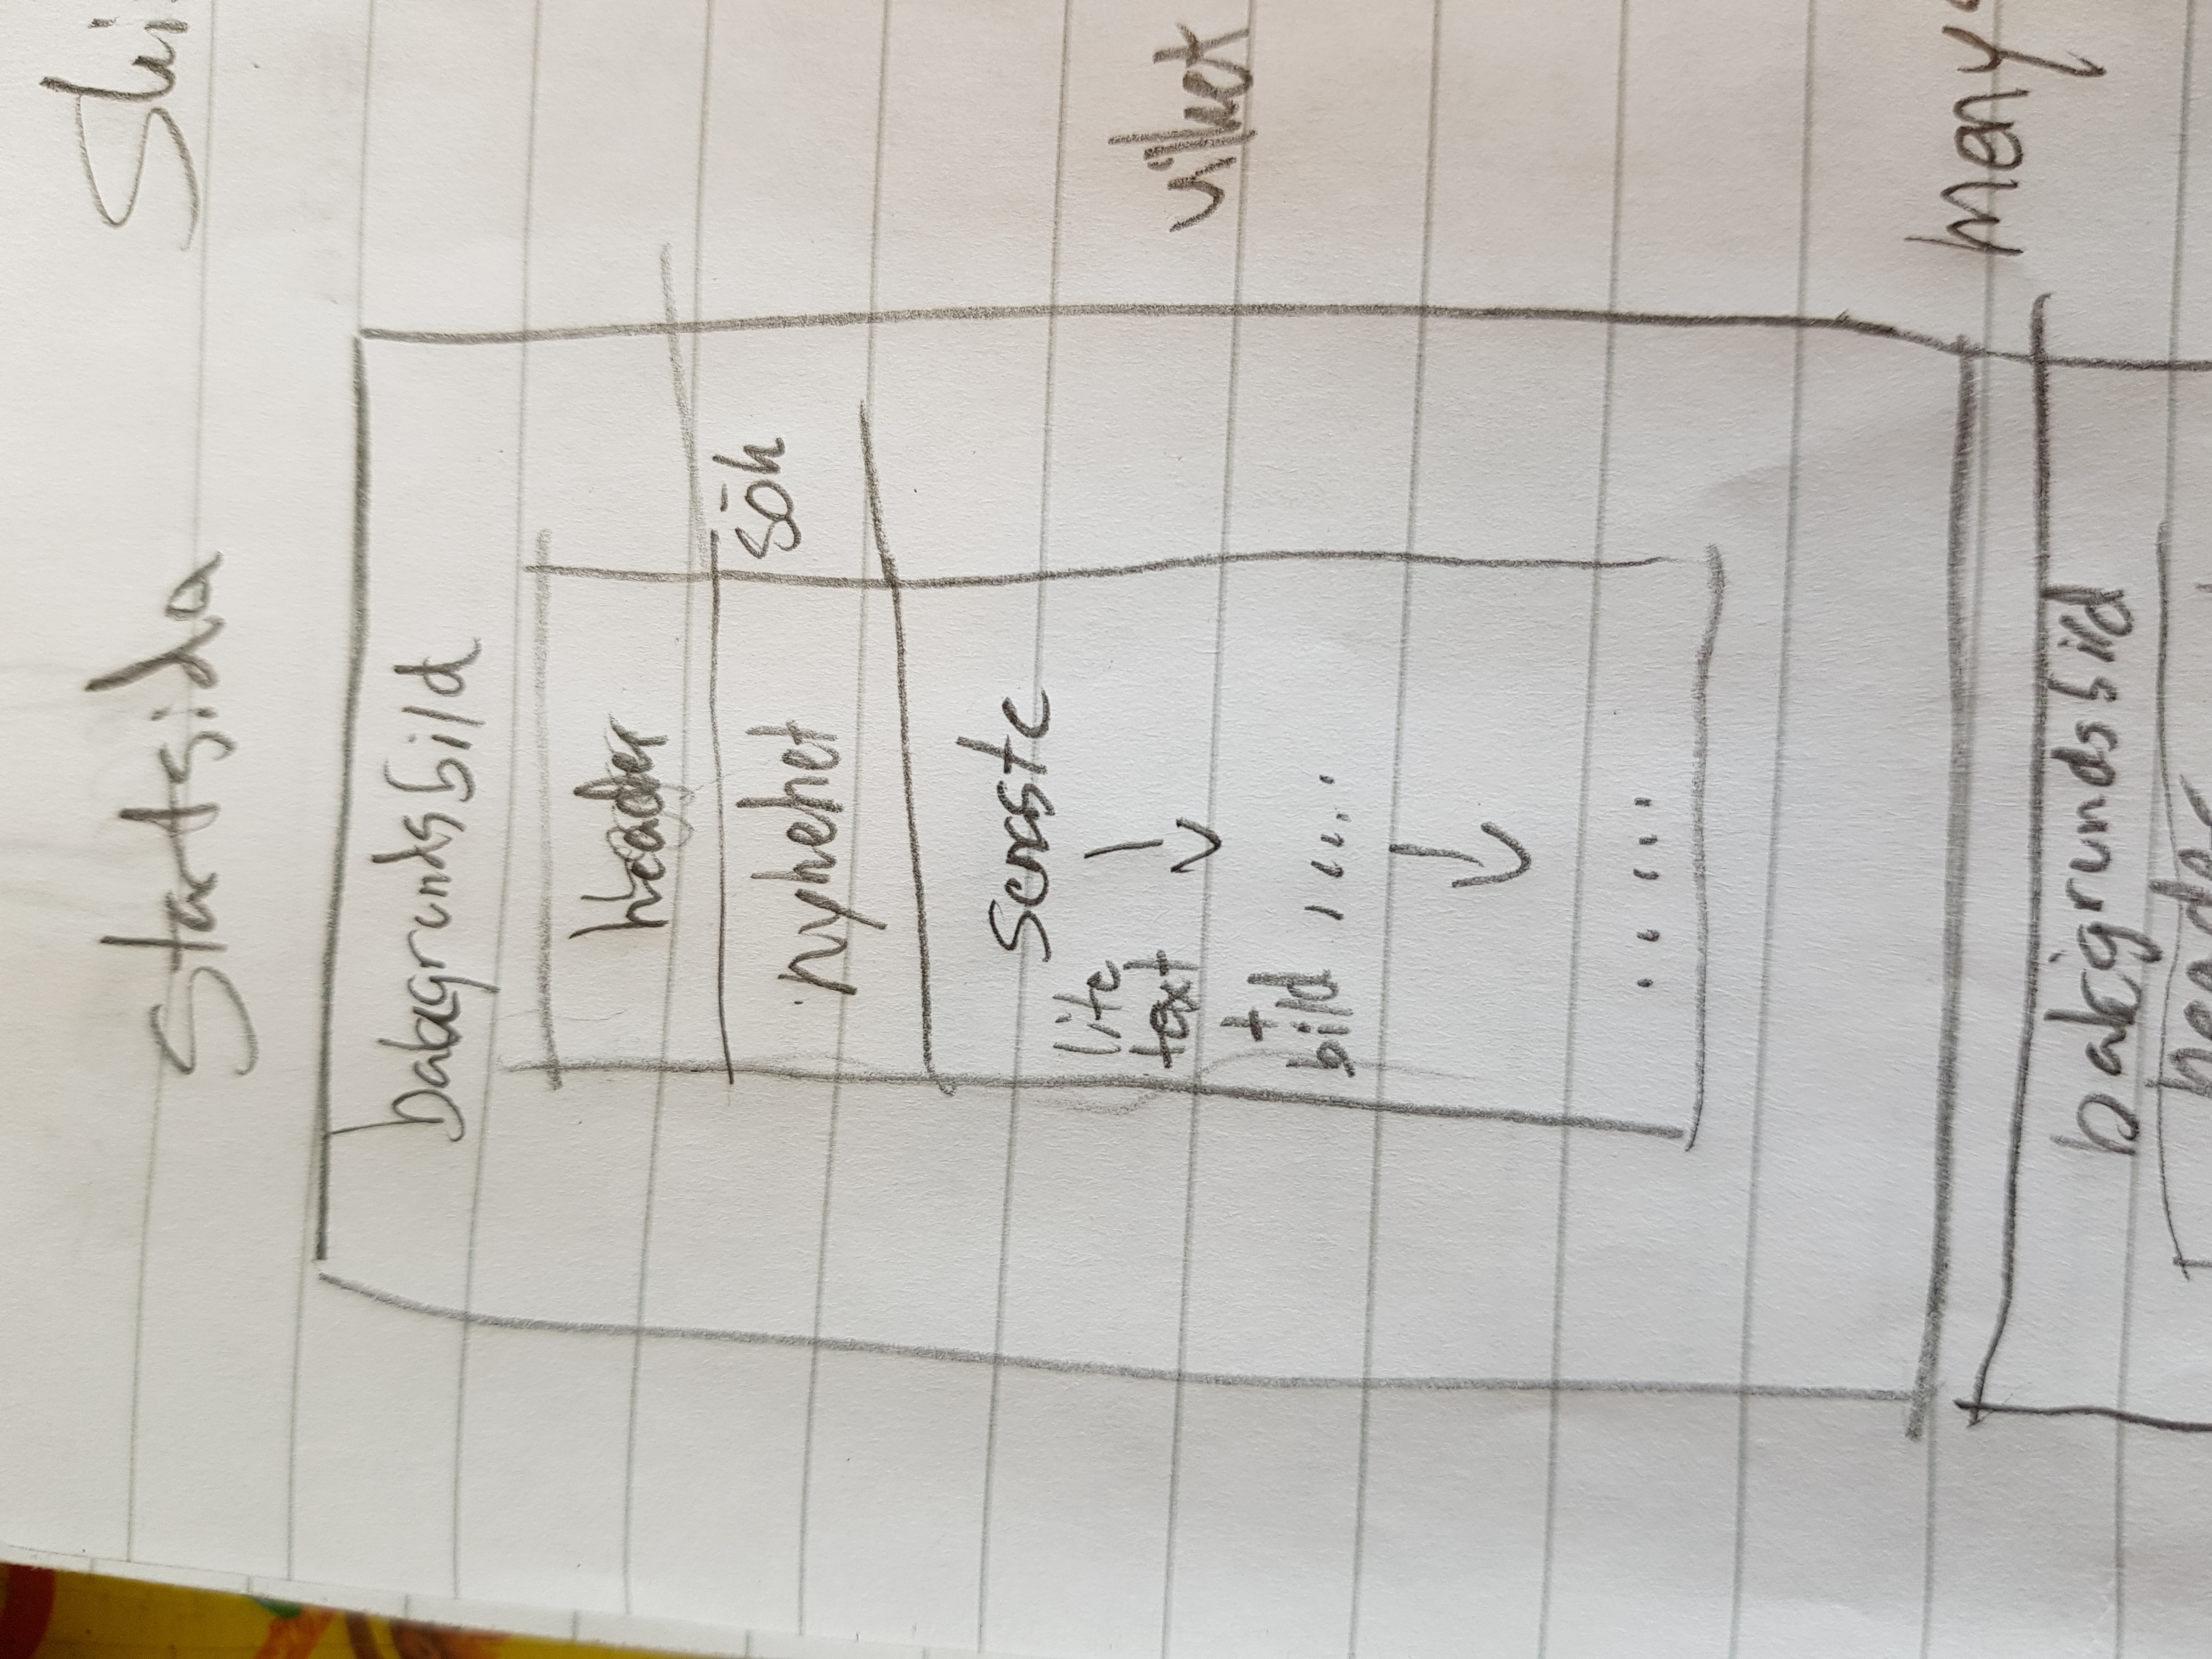 Startsida
Ski
bakgrundsbild
header
nyhehet
sök
senaste
lite
text
+
bild .....
.....
vilket
meny
bakgrundsbild
header